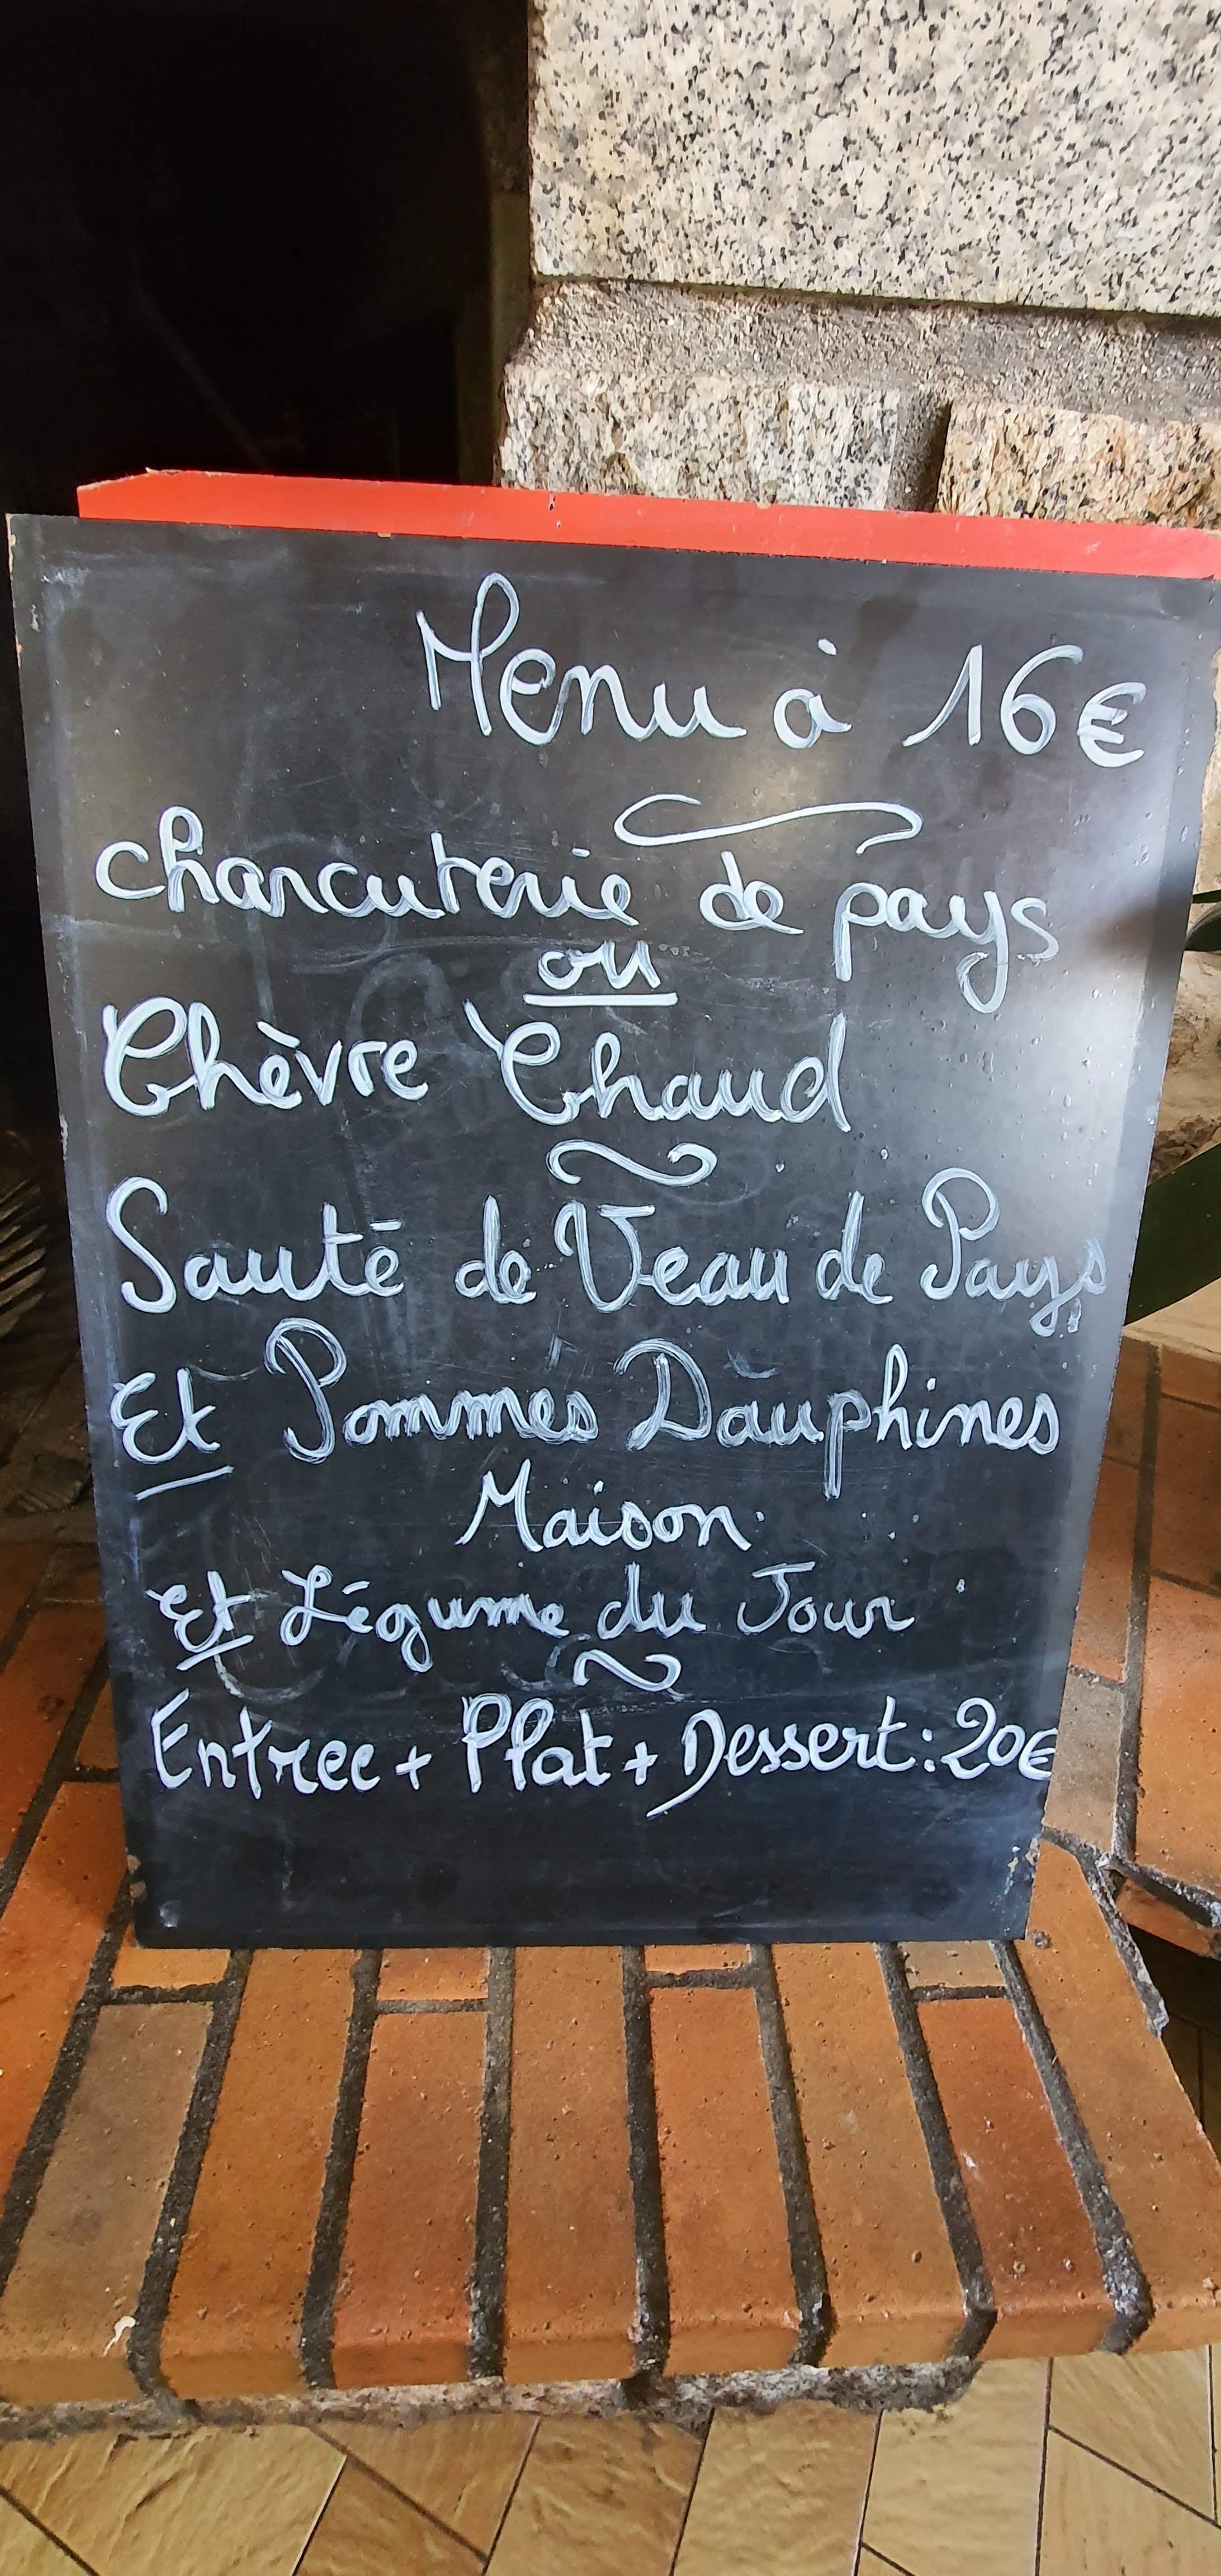 Menu à 16€
Charcuterie de pays
ou
Chèvre Chaud
Sauté de Veau de Pays
Et Pommes Dauphines
Maison
Et Légume du Jour
Entree + Plat + Dessert : 20€